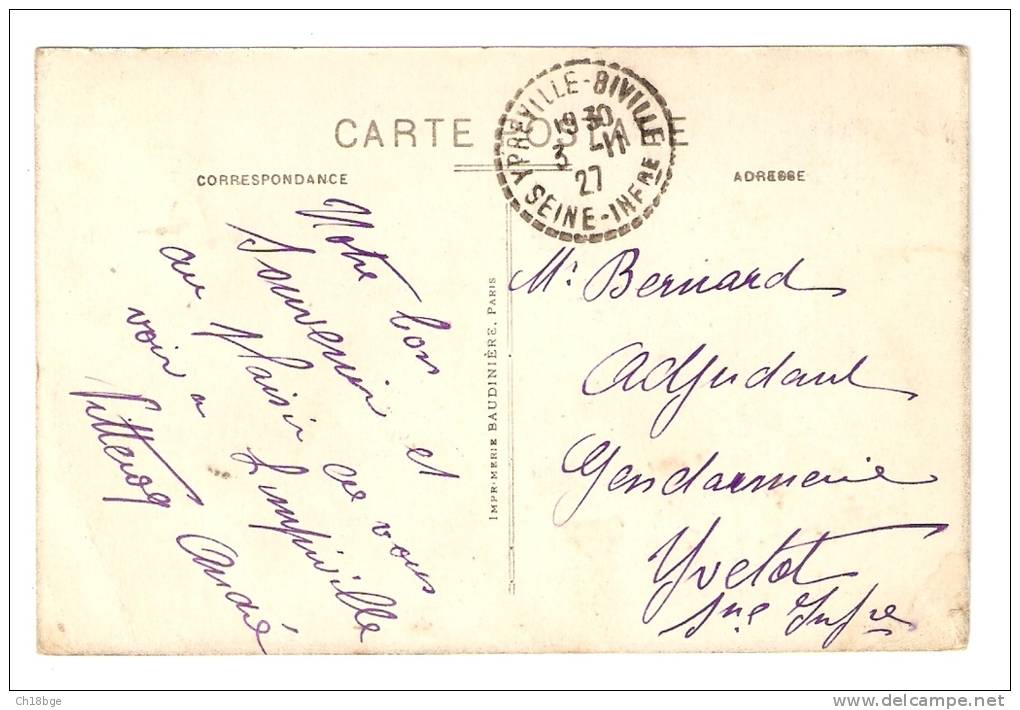 CARTE POSTALE
CORRESPONDANCE
ADRESSE
YPREVILLE-BIVILLE
19 30
3 - 11
27
SEINE-INFRE
IMPRIMERIE BAUDINIÈRE, PARIS
Notre bon et
Souvenir
au plaisir de vous
voir a Limpiville
André
Mr Bernard
Adjudant
Gendarmerie
Yvetot
Sne Infre
Ch18bge
www.delcampe.net